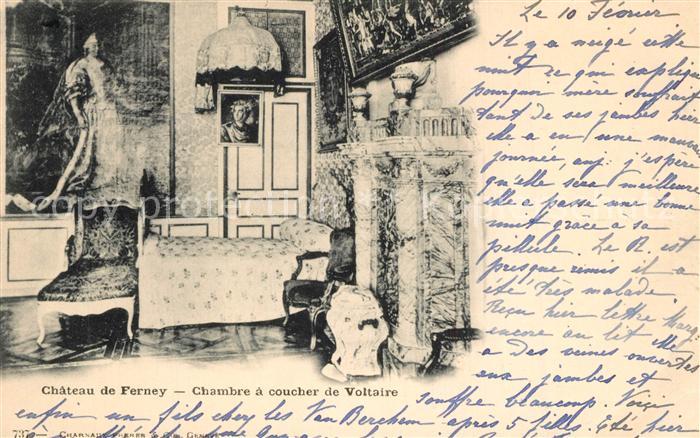 Le 10 Février
Il y a neigé cette
nuit ce qui explique
pourquoi mère souffrait
tant de ses jambes hier
elle a eu une mauvaise
journée auj: j'espère
qu'elle sera meilleure
elle a passé une bonne
nuit grace a sa
pillule. Le R. est
presque remis il a
été très malade.
Reçu hier lettre Marg.
encore au lit elle
a des veines ouvertes
aux jambes et
souffre beaucoup. Voici
enfin un fils chez les Van Berchem après 5 filles. Eté hier
Château de Ferney — Chambre à coucher de Voltaire
737 — CHARNAUX FRÈRES & Co., GENÈVE
copy protection